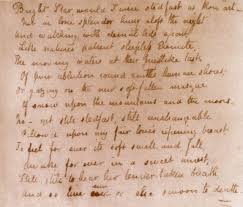 Bright Star, would I were stedfast as thou art—
Not in lone splendor hung aloft the night
And watching, with eternal lids apart,
Like nature's patient sleepless Eremite,
The moving waters at their priestlike task
Of pure ablution round earth's human shores,
Or gazing on the new soft-fallen masque
Of snow upon the mountains and the moors.
No—yet still stedfast, still unchangeable
Pillow'd upon my fair love's ripening breast
To feel for ever its soft swell and fall,
Awake for ever in a sweet unrest,
Still, still to hear her tender-taken breath
And so live ever—or else swoon to death